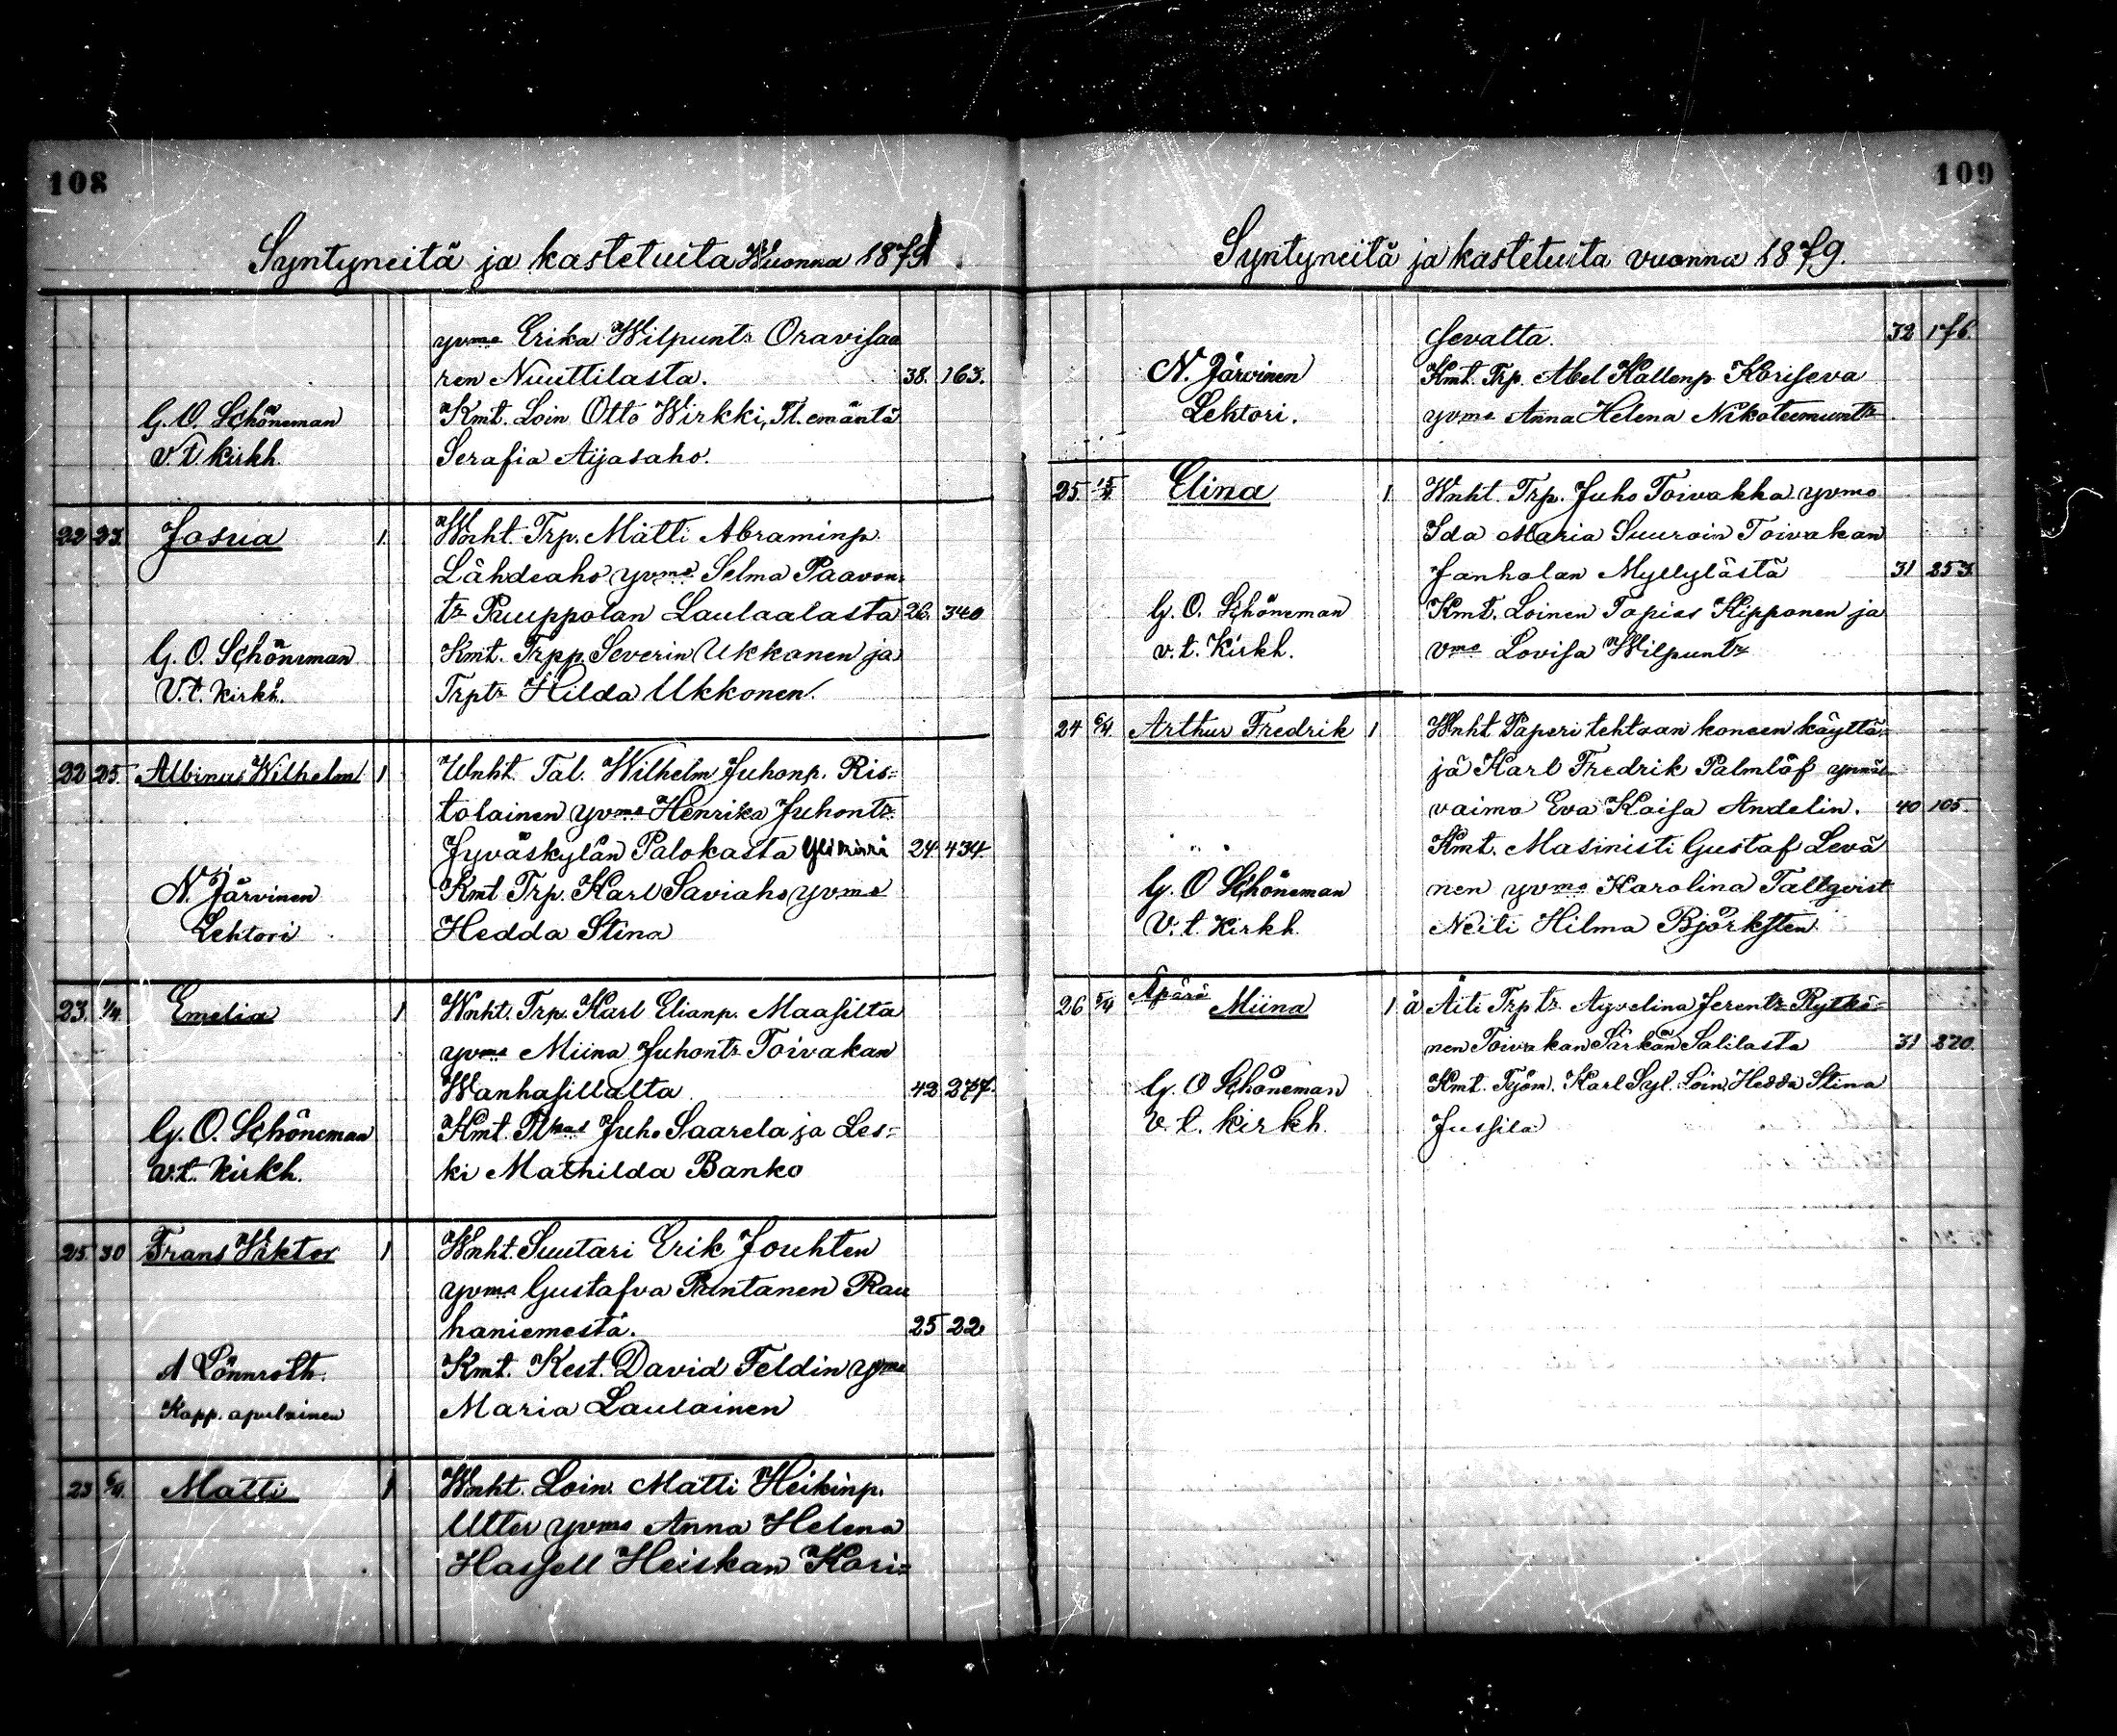 108
Syntyneitä ja kastetuita Wuonna 1879.
yvmo Erika Wilpuntr Oravisaa
ren Nuuttilasta. 38. 163.
G. O. Schöneman Kmt. Loin Otto Wirkki, Tl. emäntä
v. t. kirkh. Serafia Aijasaho.
22 23. Josua 1. Wnht. Trp. Matti Abraminp.
Lähdeaho yvmo Selma Paavon-
tr Puuppolan Laulaalasta 26. 340
G. O. Schöneman Kmt. Trpp. Severin Ukkonen ja
V. t. Kirkh. Trptr Hilda Ukkonen.
22 25. Albinus Wilhelm 1 Wnht. Tal. Wilhelm Juhonp. Ris=
tolainen yvmo Henrika Juhontr.
Jyväskylän Palokasta 24. 434.
N. Järvinen Kmt Trp. Karl Saviaho yvmo
Lehtori Hedda Stina
23. 1/4. Emelia 1 Wnht. Trp. Karl Elianp. Maasilta
yvmo Miina Juhontr Toivakan
Wanhasillalta 42 277.
G. O. Schöneman Kmt. Juho Saarela ja Les=
v. t. Kirkh. ki Mathilda Banko
25. 30 Frans Viktor 1 Wnht. Suutari Erik Jouhten
yvmo Gustafva Pantanen Rau
haniemestä. 25 22
A Lönnroth. Kmt. Kest. David Feldin yvmo
Kapp. apulainen Maria Laulainen
23 6/4. Matti 1 Wnht. Loin. Matti Heikinp.
Utter yvmo Anna Helena
Hassell Heiskan Kori=
109
Syntyneitä ja kastetuita vuonna 1879.
sevalta. 32 176.
N. Järvinen Kmt. Trp. Abel Kallenp Koriseva
Lehtori. yvmo Anna Helena Nikoteemuntr
25 Elina 1 Wnht. Trp. Juho Toivakka yvmo
Ida Maria Suuroin Toivakan
Janholan Myllylästä 31 253.
G. O. Schöneman Kmt. Loinen Topias Kipponen ja
v. t. Kirkh. vmo Lovisa Wilpuntr
24 6/4 Arthur Fredrik 1 Wnht Paperi tehtaan koneen käyttä=
jä Karl Fredrik Palmlöf
vaimo Eva Kaisa Andelin. 40 105.
Kmt. Masinisti Gustaf Levä
G. O Schöneman nen yvmo Karolina Tallqvist
V. t. Kirkh. Neiti Hilma Björksten
26 5/4 Äpärä Miina 1 ä Äiti Trptr Ayvelina Jerentr Rytkö=
nen Toivakan Särkän Salilasta 31 220.
G. O Schöneman Kmt. Työm. Karl Syl. Loin. Hedda Stina
v. t. kirkh. Jussila